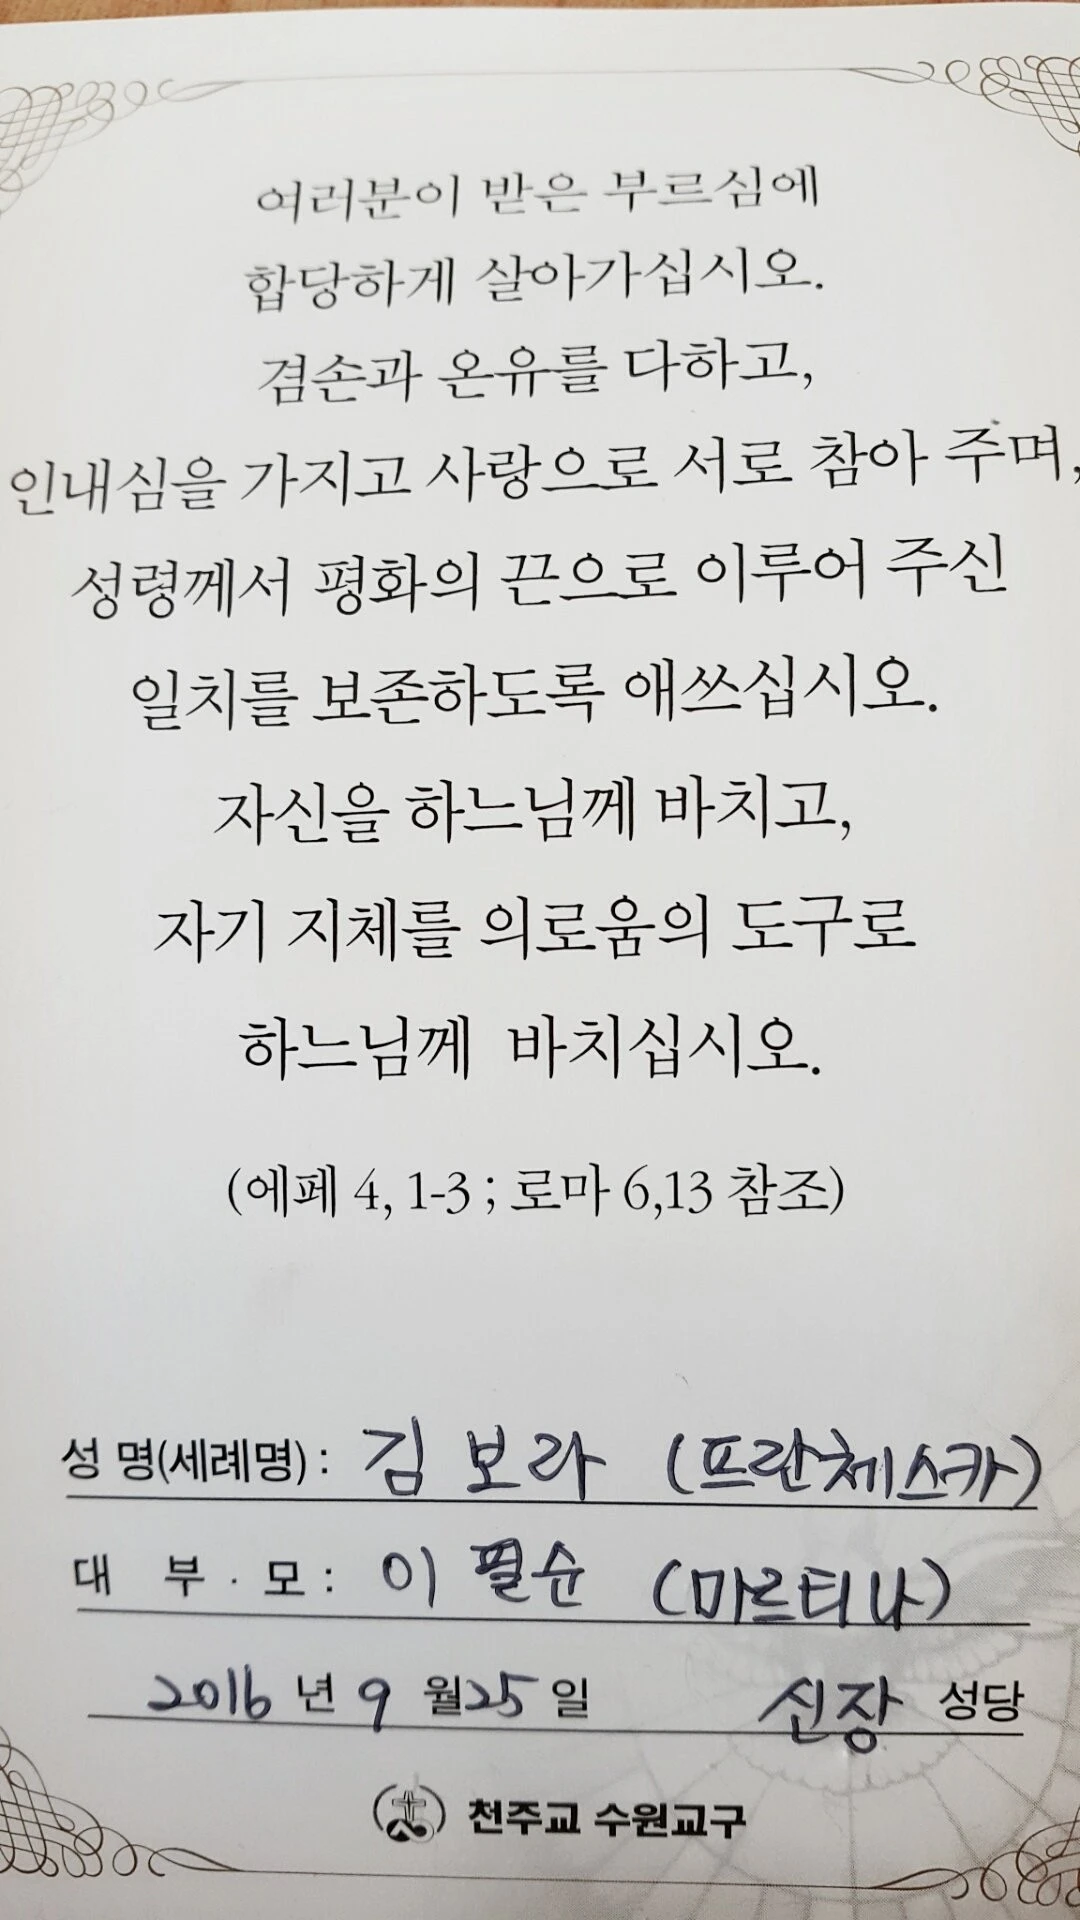 여러분이 받은 부르심에
합당하게 살아가십시오.
겸손과 온유를 다하고,
인내심을 가지고 사랑으로 서로 참아 주며,
성령께서 평화의 끈으로 이루어 주신
일치를 보존하도록 애쓰십시오.
자신을 하느님께 바치고,
자기 지체를 의로움의 도구로
하느님께 바치십시오.
(에페 4, 1-3 ; 로마 6,13 참조)
성 명(세례명) : 김 보라 (프란체스카)
대 부 · 모 : 이 필순 (마르티나)
2016 년 9 월 25 일 신장 성당
천주교 수원교구